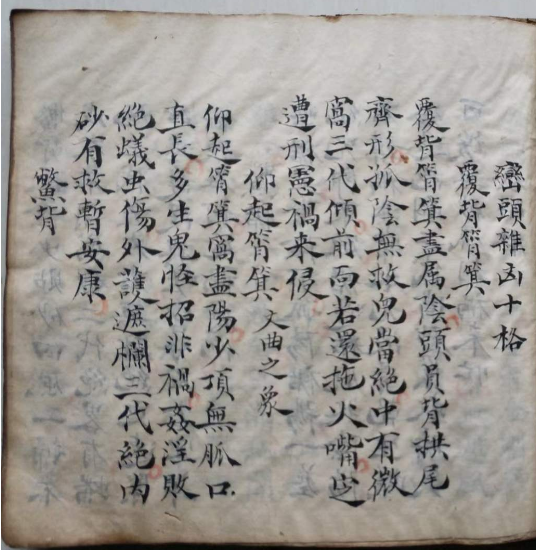 巒頭雜凶十格
覆背筲箕
覆背筲箕盡属陰頭員背拱尾
齊形孤陰無救兒當絕中有微
窩三代傾前面若還拖火嘴定
遭刑憲禍来侵
仰起筲箕 文曲之象
仰起筲箕窩盡陽少頂無脈口
直長多生鬼怪招非禍姦淫敗
絕蟻虫傷外護遮欄三代絕內
砂有救暫安康
鱉背